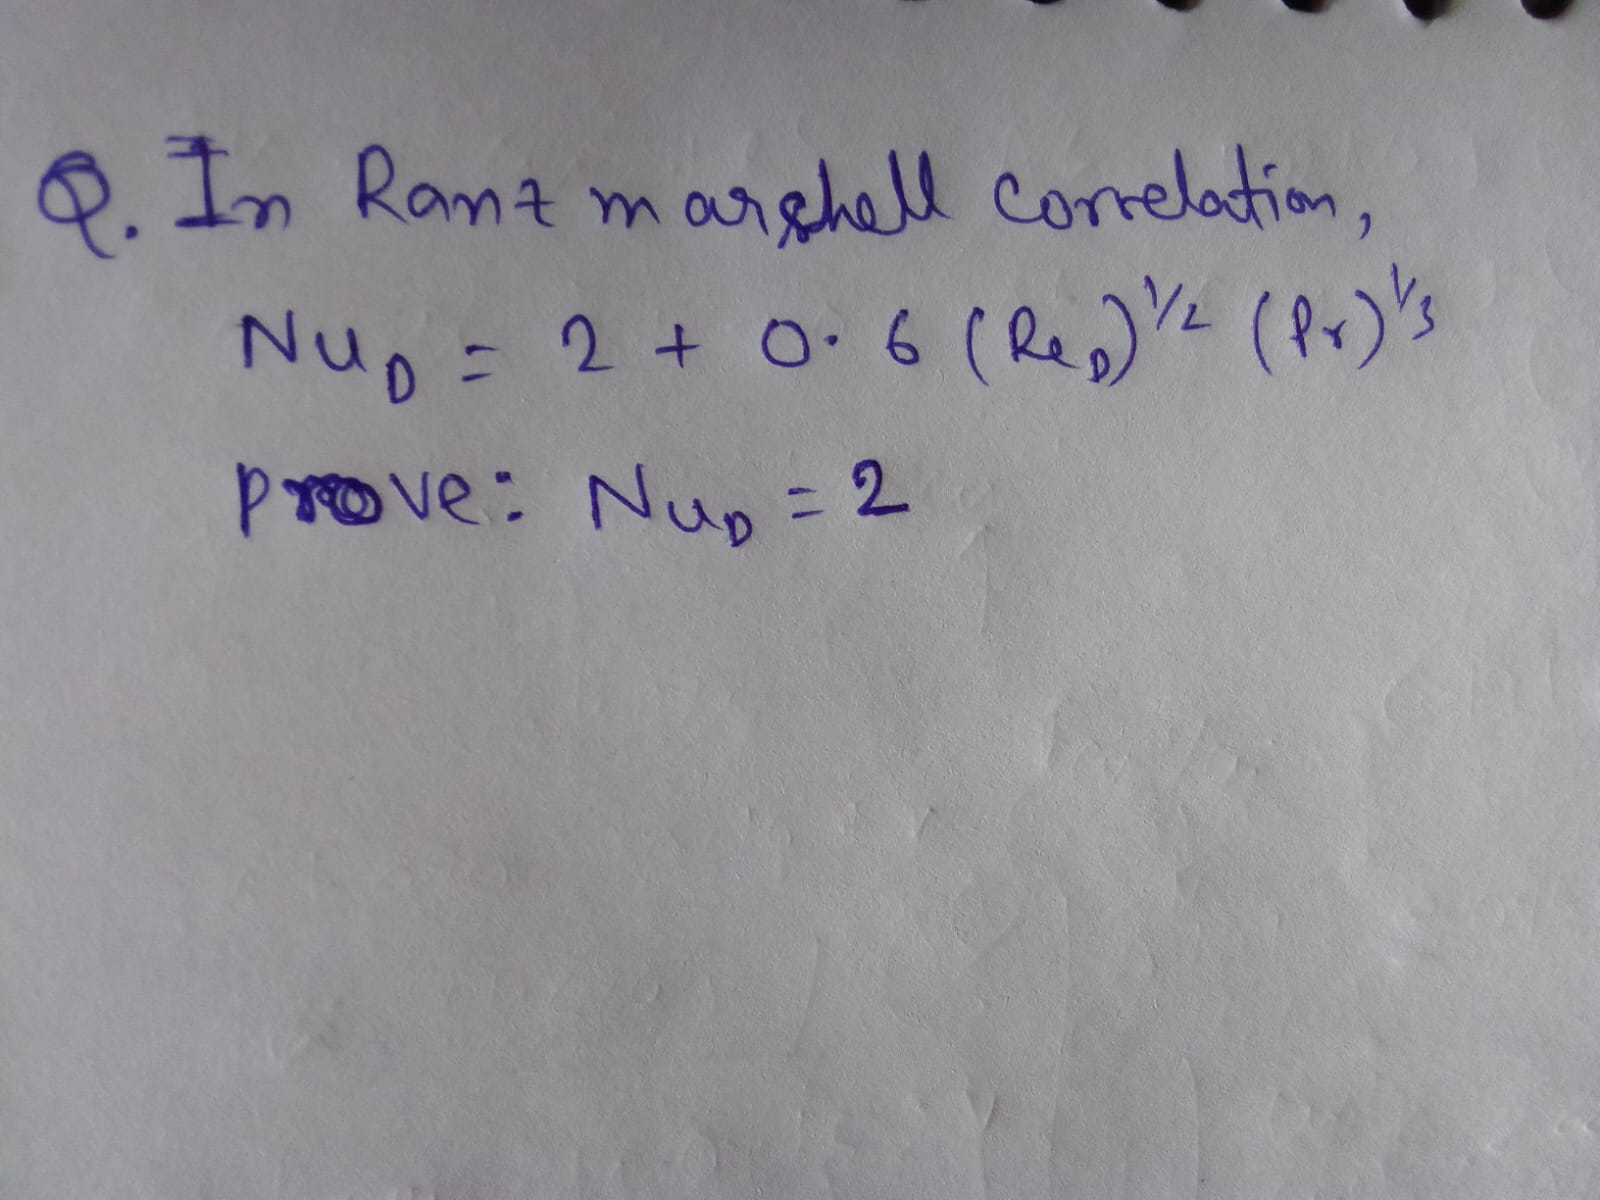 Q. In Ranz marshell correlation,
Nu_D = 2 + 0.6 (Re_D)^1/2 (Pr)^1/3
prove: Nu_D = 2